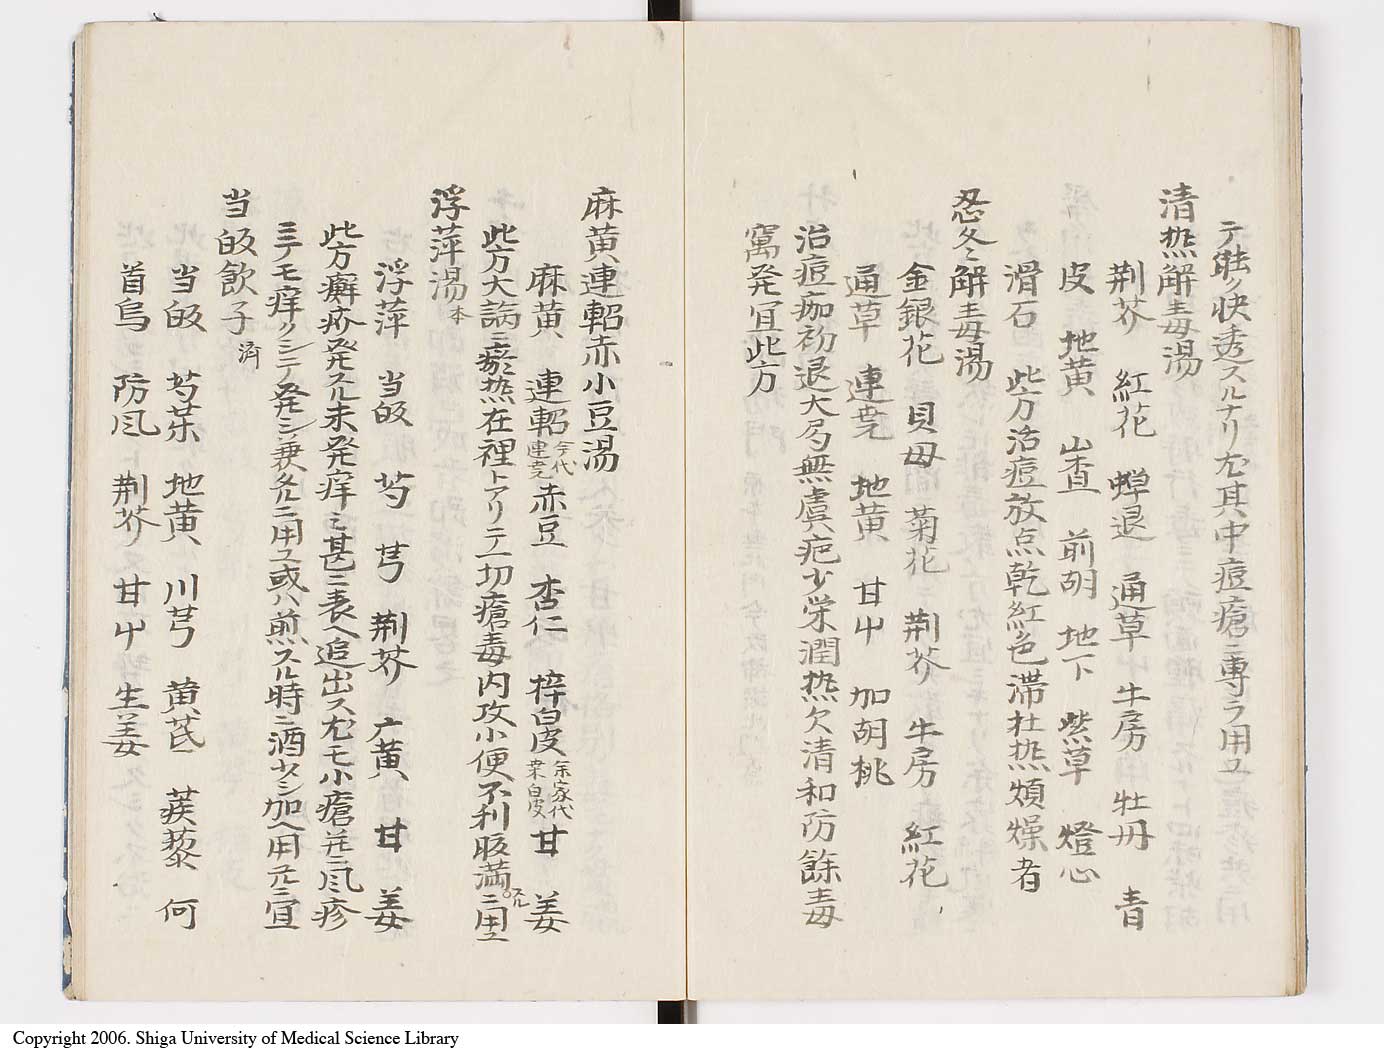 テ能ク快透スルナリ尤其中痘瘡ニ専ラ用ユ
清热解毒湯
荆芥 紅花 蟬退 通草 牛房 牡丹 青
皮 地黄 山査 前胡 地下 紫草 燈心
滑石 此方治痘放点乾紅色滞壮热煩燥者
忍冬解毒湯
金銀花 貝母 菊花 荆芥 牛房 紅花
通草 連尭 地黄 甘艸 加胡桃
治痘痂初退大局無虞疤少栄潤热欠清和防餘毒
窩発宜此方
麻黄連軺赤小豆湯
麻黄 連軺今代連尭 赤豆 杏仁 梓白皮余家代桒白皮 甘 姜
此方大論ニ瘀热在裡トアリテ一切瘡毒内攻小便不利腹満スルニ用ユ
浮萍湯本
浮萍 当皈 芍 芎 荆芥 广黄 甘 姜
此方癬疥発スル未発痒ミ甚ニ表ヘ追出ス尤モ小瘡並ニ風疹
ミテモ痒クシテ発シ兼タルニ用ユ或ハ煎スル時ニ酒少シ加ヘ用テ宜
当皈飲子済
当皈 芍薬 地黄 川芎 黄芪 蒺藜 何
首烏 防風 荆芥 甘艸 生姜
Copyright 2006. Shiga University of Medical Science Library